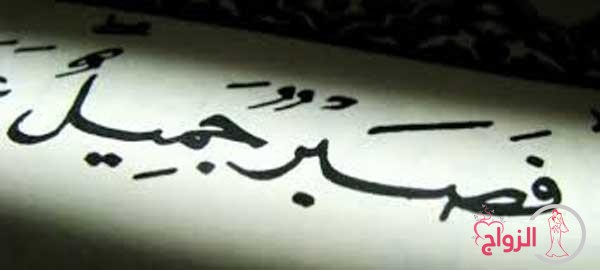 فَصَبْرٌ جَمِيلٌ
الزواج